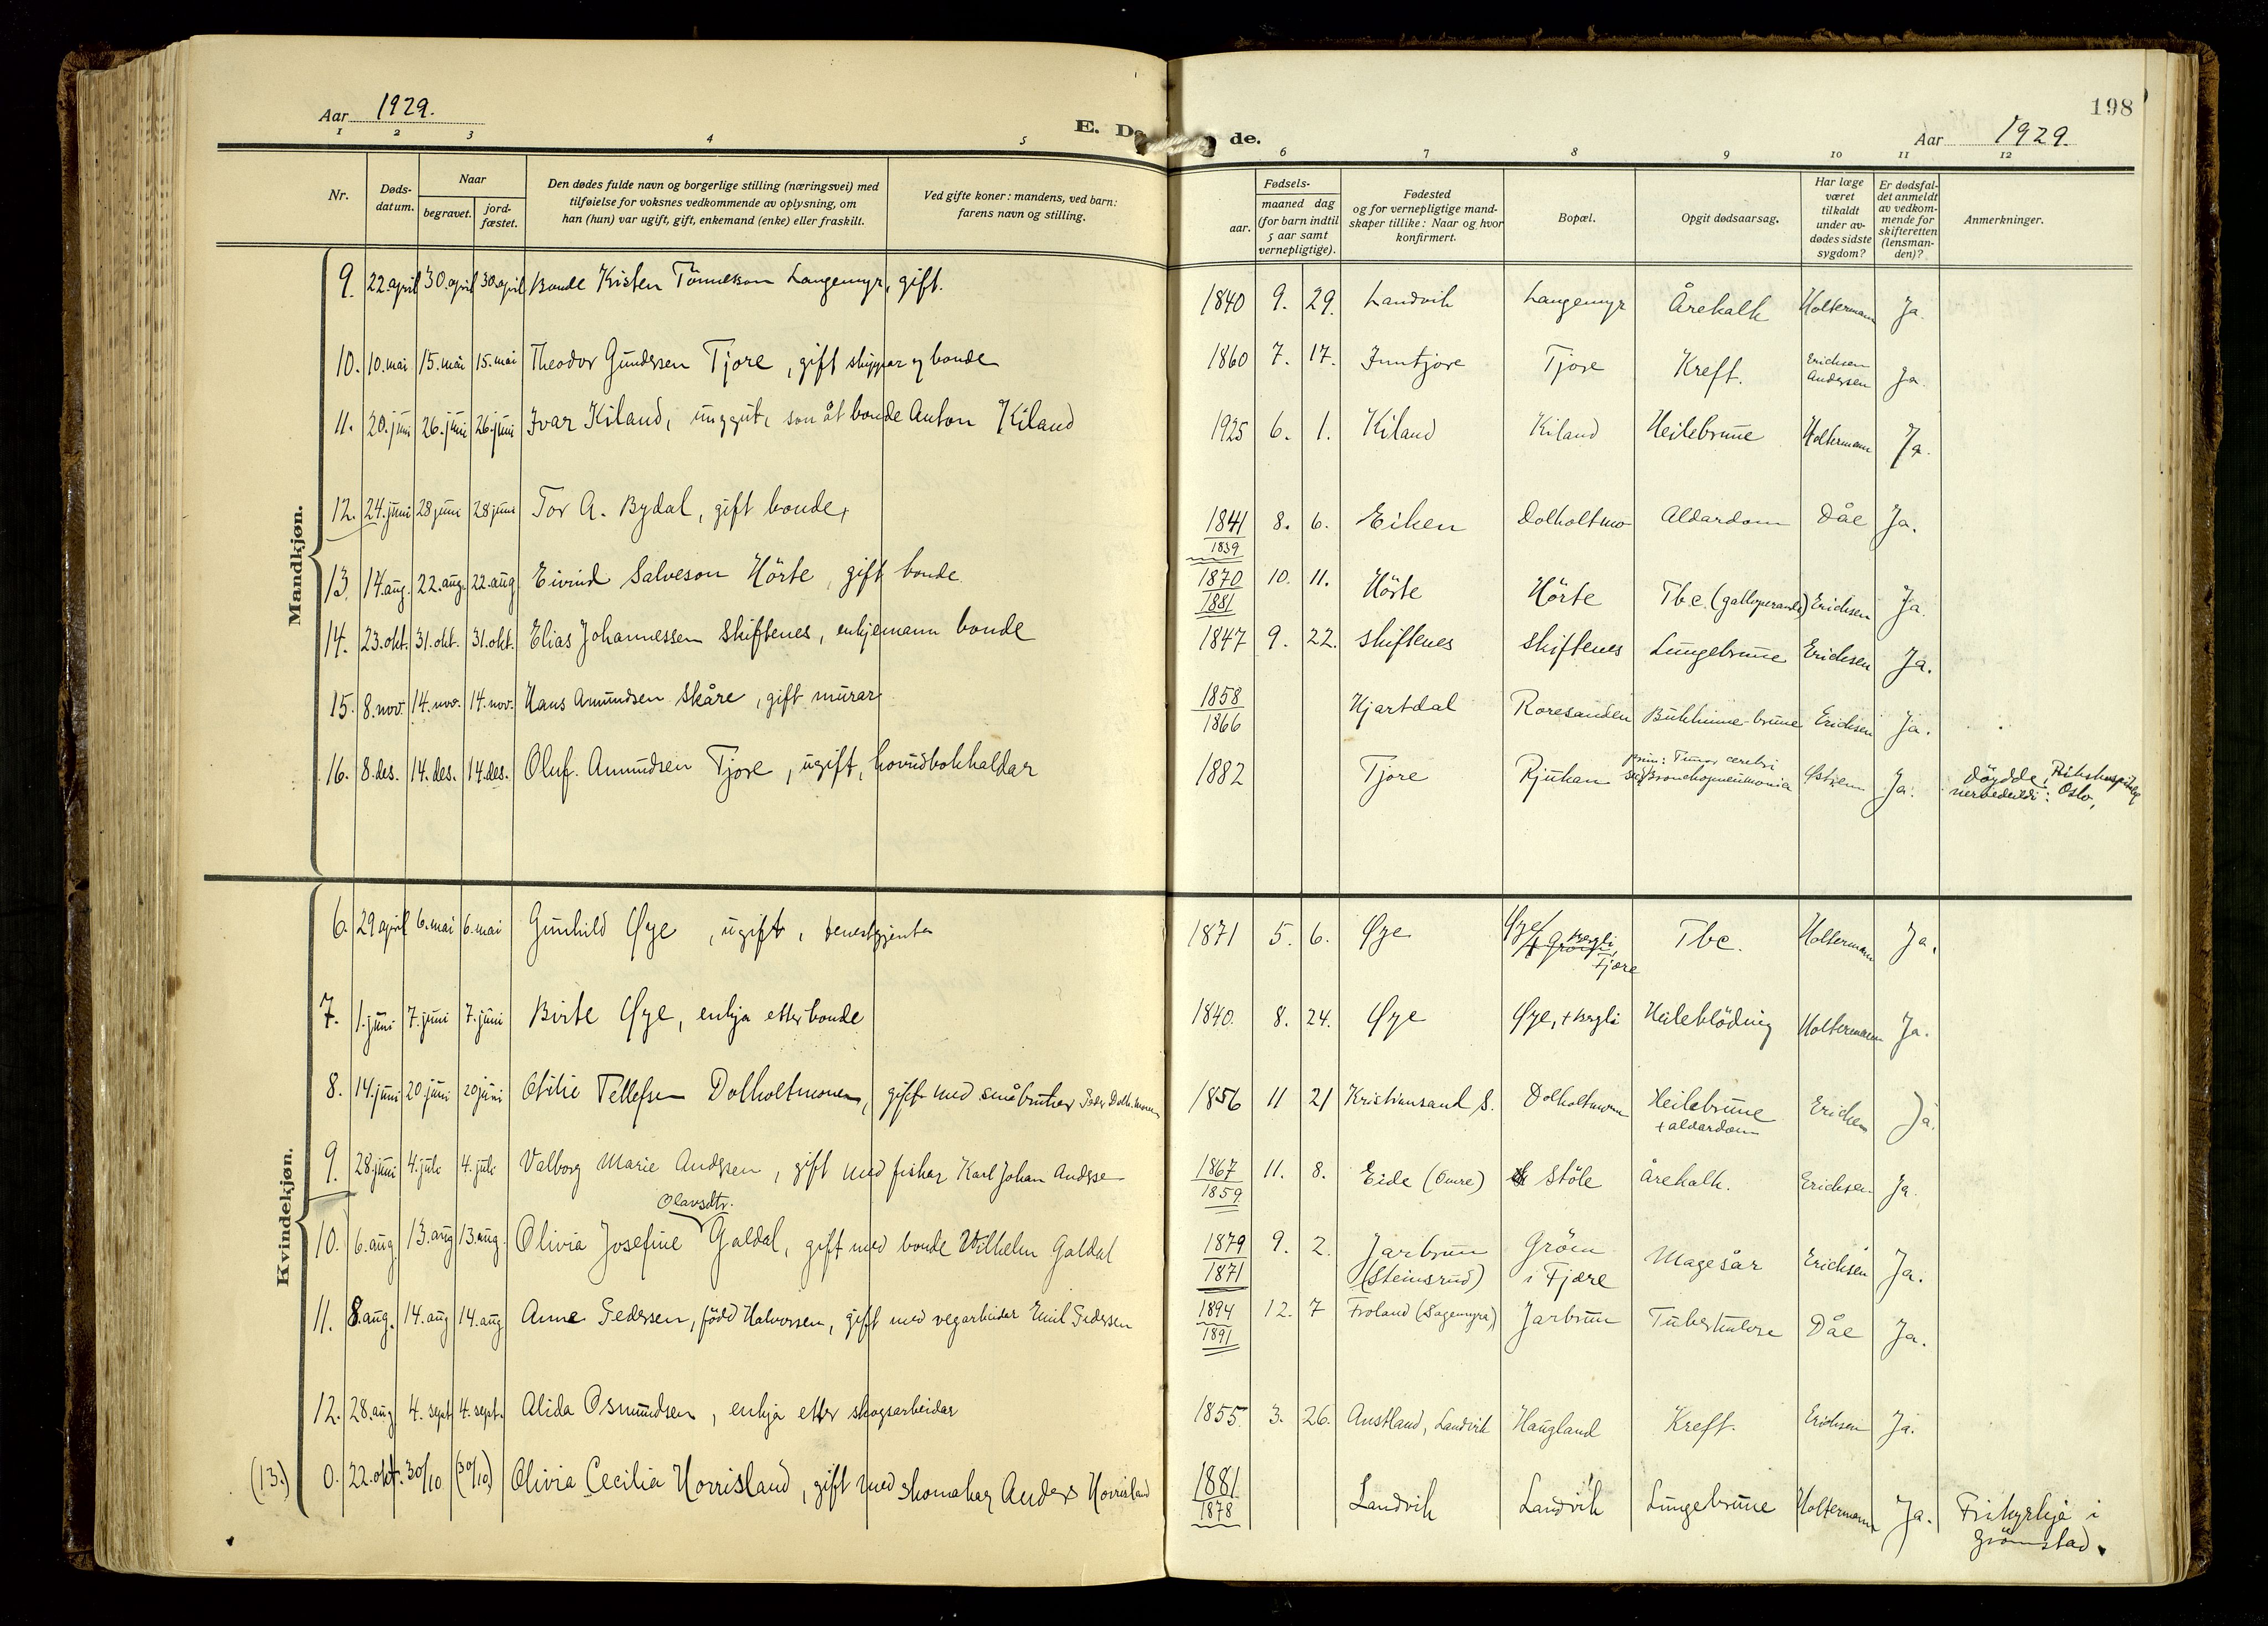 198
Aar 1929.
E. Dø de.
Aar 1929.
1 2 3 4 5 6 7 8 9 10 11 12
Nr.
Døds-
datum.
Naar
begravet.
jord-
fæstet.
Den dødes fulde navn og borgerlige stilling (næringsvei) med
tilføielse for voksnes vedkommende av oplysning, om
han (hun) var ugift, gift, enkemand (enke) eller fraskilt.
Ved gifte koner: mandens, ved barn:
farens navn og stilling.
Fødsels-
aar.
maaned dag
(for barn indtil
5 aar samt
vernepligtige).
Fødested
og for vernepligtige mand-
skaper tillike: Naar og hvor
konfirmert.
Bopæl.
Opgit dødsaarsag.
Har læge
været
tilkaldt
under av-
dødes sidste
sygdom?
Er dødsfal-
det anmeldt
av vedkom-
mende for
skifteretten
(lensman-
den)?
Anmerkninger.
Mandkjøn.
9. 22. april 30. april 30. april Bonde Kristen Tönnesson Langemyr, gift. 1840 9. 29. Landvik Langemyr Årekalk Holtermann Ja.
10. 10. mai 15. mai 15. mai Theodor Gundersen Tjore, gift skippar og bonde 1860 7. 17. Inntjore Tjore Kreft. Erichsen
Andersen Ja.
11. 20. juni 26. juni 26. juni Ivar Kiland, unggut, son åt bonde Anton Kiland 1925 6. 1. Kiland Kiland Heilebrune Holtermann Ja.
12. 24. juni 28 juni 28 juni Tor A. Bydal, gift bonde, 1841 8. 6. Eiken Dolholtmo Aldardom Dåe Ja.
1839
13. 14. aug. 22. aug. 22. aug. Eivind Salveson Hörte, gift bonde. 1870 10. 11. Hörte Hörte Tbc. (galloperande) Erichsen Ja.
1881
14. 23. okt. 31. okt. 31. okt. Elias Johannessen Skiftenes, enkjemann bonde 1847 9. 22. Skiftenes Skiftenes Lungebrune Erichsen Ja.
15. 8. nov. 14. nov. 14. nov. Hans Amundsen Skåre, gift murar 1858 Hjartdal Roresanden Bukhinne-brune Erichsen Ja.
1866
16. 8. des. 14. des. 14. des. Oluf. Amundsen Tjore, ugift, hovudbokhaldar 1882 Tjore Rjukan prim: Tumor cerebri
Bronchopneumonia Ja. döydde, Rikshospitalet
Oslo,
Kvindekjøn.
6. 29 april 6. mai 6. mai Gunhild Øye, ugift, tenestgjenta 1871 5. 6. Øye Øye Bergli,
Fjære Tbc. Holtermann Ja.
7. 1. juni 7. juni 7. juni Birte Øye, enkja etter bonde 1840. 8. 24. Øye Øye, + Bergli Heileblöding Holtermann Ja.
8. 14. juni 20. juni 20 juni Otilie Tellefsen Dolholtmonen, gift med småbruker Peder Dolh.monen 1856 11 21 Kristiansand S. Dolholtmoen Heilebrune
+ aldardom Erichsen Ja.
9. 28. juni 4. juli 4. juli Valborg Marie Andersen, gift med fiskar Karl Johan Andersen 1867 11. 8. Eide (Omre) Stöle Årekalk. Erichsen Ja.
1859
Olavsdtr.
10. 6. aug. 13. aug 13. aug. Olivia Josefine Galdal, gift med bonde Wilhelm Galdal 1879 9. 2. Jarbrun
(Steinsrud) Gröm
i Fjære Magesår Erichsen Ja.
1871
11. 8. aug. 14. aug 14. aug Anne Pedersen, född Halvorsen, gift med vegarbeider Emil Pedersen 1894 12. 7 Froland (Sagemyra) Jarbrun Tuberkulose Dåe Ja.
1891
12. 28. aug 4. sept 4. sept. Alida Osmundsen, enkja etter skogsarbeidar 1855. 3. 26. Austland, Landvik Haugland Kreft. Erichsen Ja.
(13.) 0. 22. okt. 30/10 (30/10) Olivia Cecilia Horrisland, gift med skomakar Anders Horrisland 1881 Landvik Landvik Lungebrune Holtermann Ja. Frikyrkja i
Grömstad.
1878